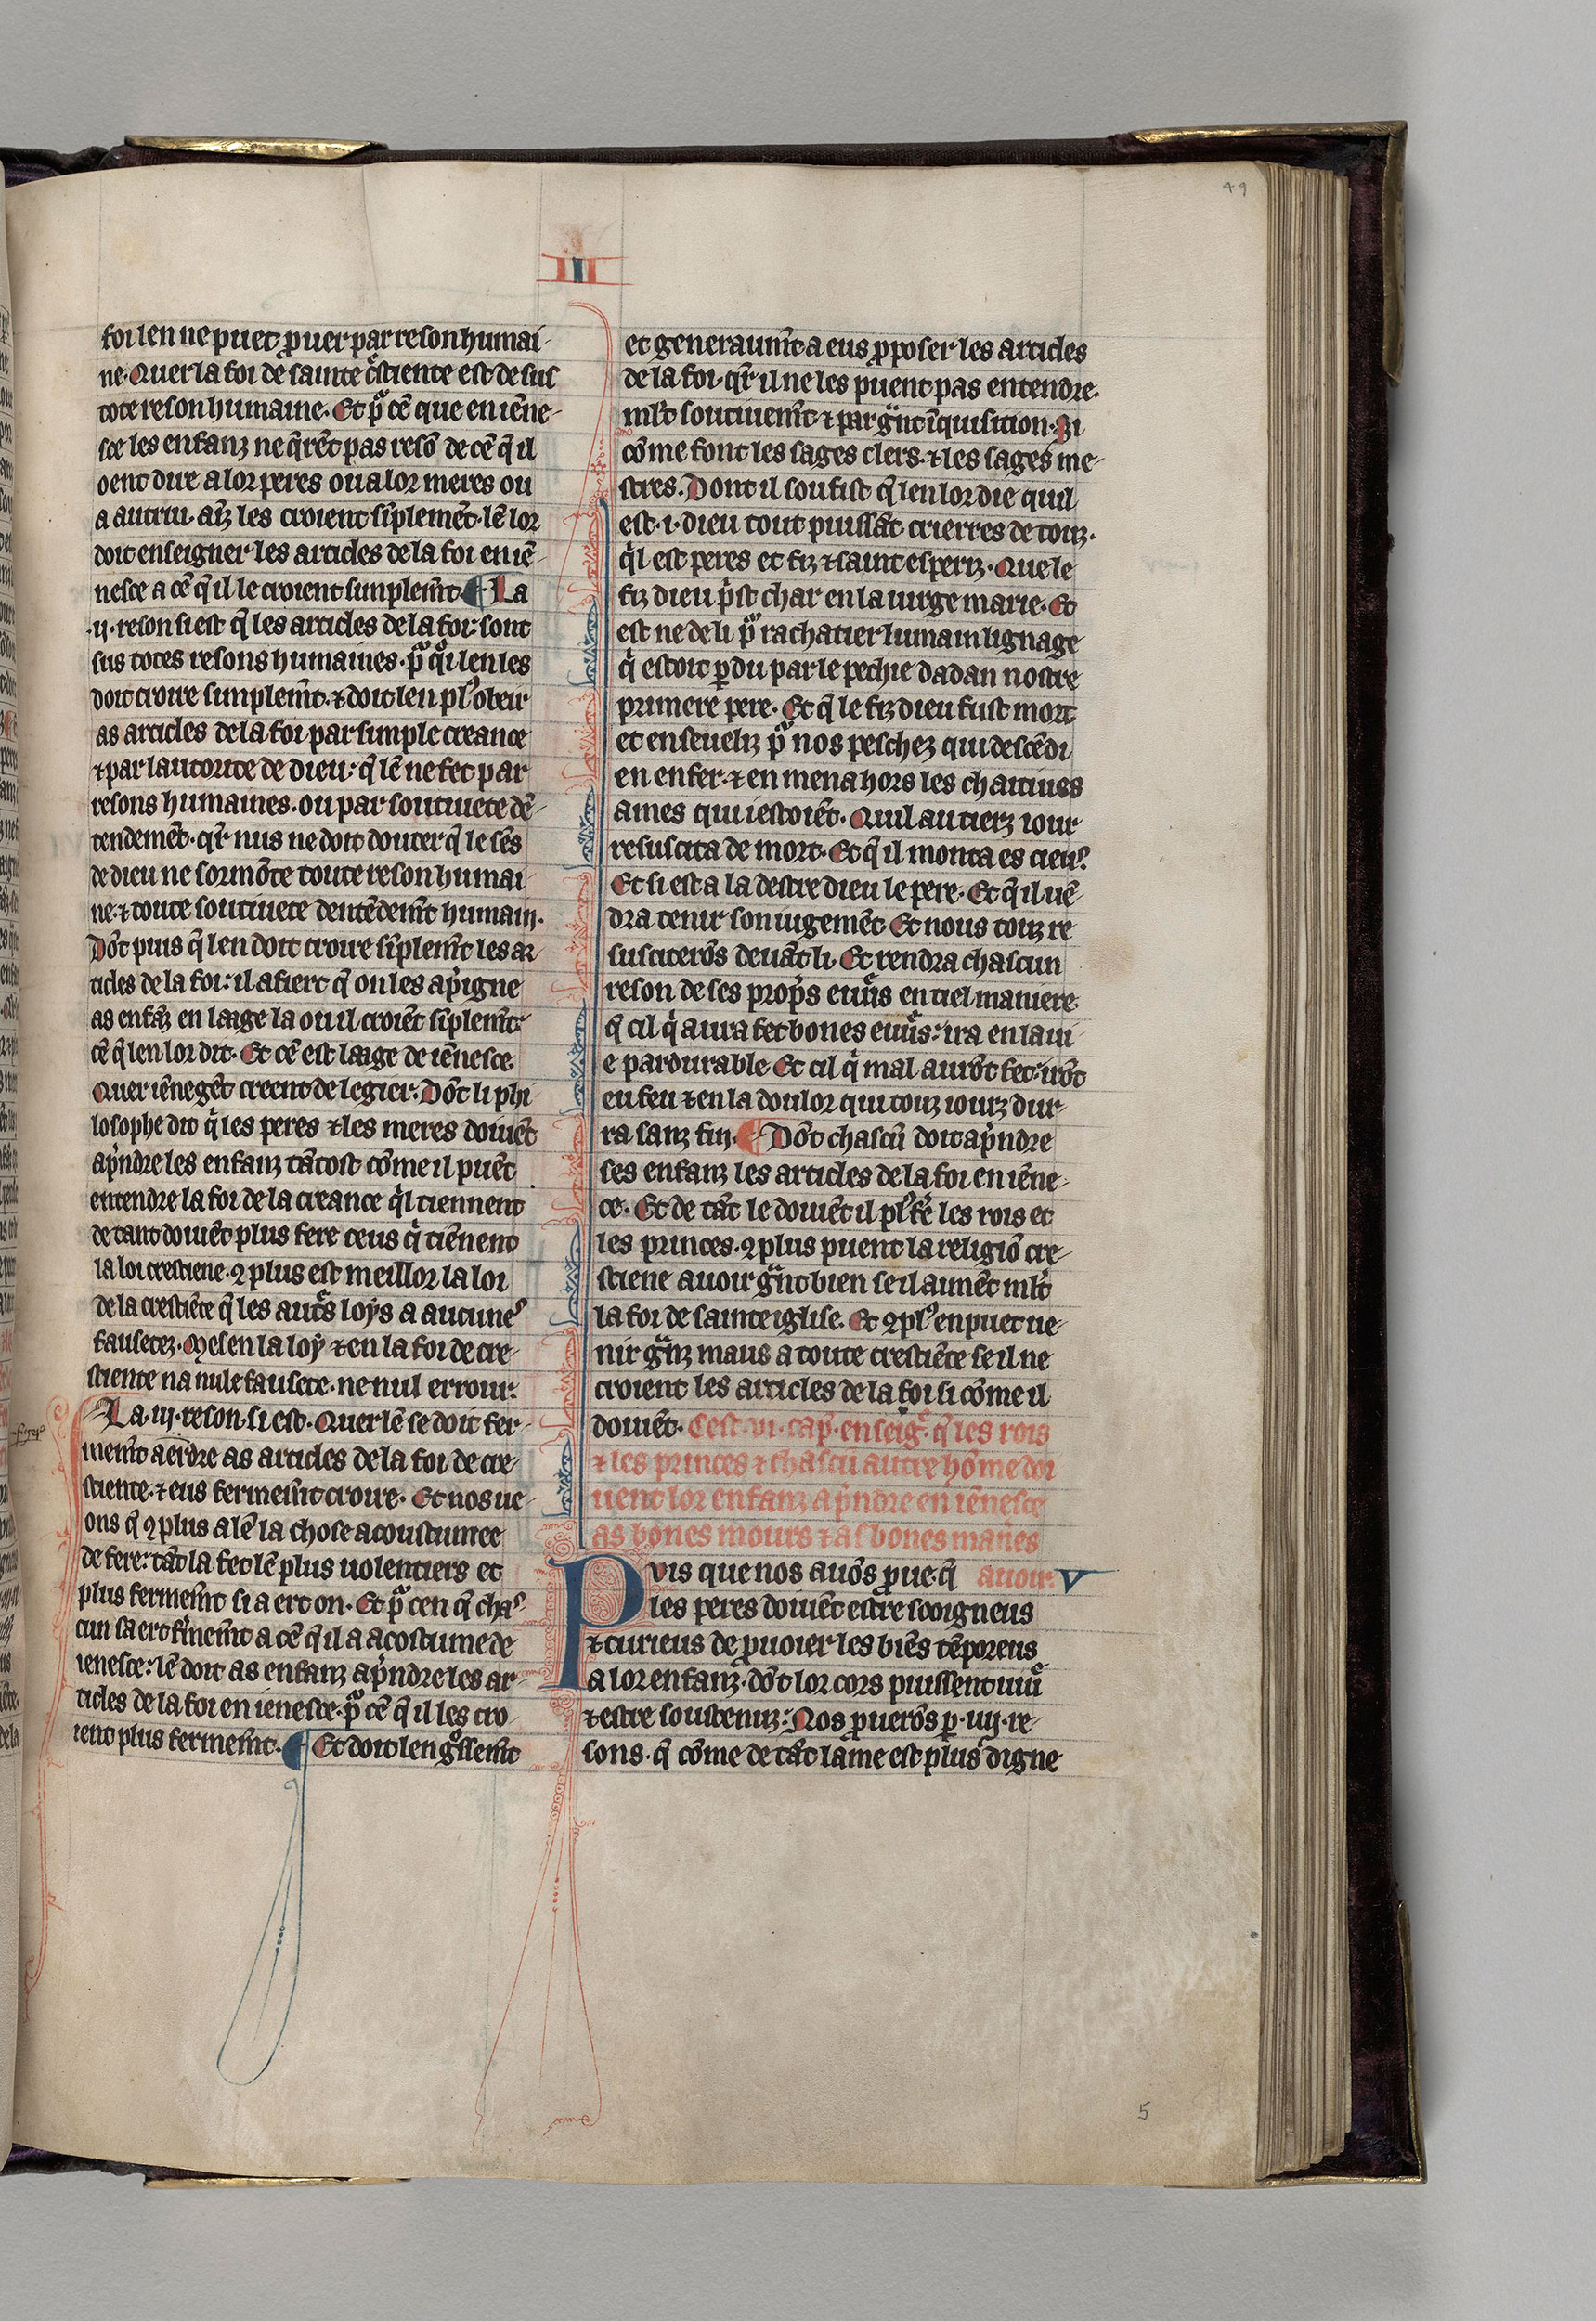 49
III
foi len ne puet ꝓuer par reson humai-
ne. Quer la foi de sainte cͣstiente est de sus
tote reson humaine. Et pͦ cē que en iēne-
sce les enfanz ne q̄rēt pas resō de cē q̄ il
oent dire a lor peres ou a lor meres ou
a autrui. aīz les croient sīplemēt. lē lor
doit enseigner les articles de la foi en iē-
nesce a cē q̄ il le croient simplem̄t. ¶ La
.ij. reson si est q̄ les articles de la foi: sont
sus totes resons humaines. pͦ qͦi len les
doit croire simplem̄t. ⁊ doit len plꝰ obeir
as articles de la foi par simple creance
⁊ par lautorite de dieu: q̄ lē ne fet par
resons humaines. ou par soutiuete dē-
tendemēt. qr̄ nus ne doit douter q̄ le sēs
de dieu ne sormōte toute reson humai-
ne. ⁊ toute soutiuete dentēdem̄t humain.
Dōt puis q̄ len doit croire sīplem̄t les ar
ticles de la foi: il afiert q̄ on les ap̄igne
as enfāz en laage la ou il croiēt sīplem̄t
cē q̄ len lor dit. Et cē est laage de iēnesce.
Quer iēne gēt creent de legier: Dōt li phi
losophe dit q̄ les peres ⁊ les meres doiuēt
ap̄ndre les enfanz tātost cōme il puēt
entendre la foi de la creance qͥl tiennent
de tant doiuēt plus fere ceus qͥ tiēnent
la loi crestiene. ꝯ plus est meillor la loi
de la crestiēte q̄ les autͤs loys a aucuneˢ
fausetez. Mes en la loy ⁊ en la foi de cre-
stiente na nule fausete. ne nul errour.
La .iij. reson. si est. Quer lē se doit fer-
mem̄t aerdre as articles de la foi de cre-
stiente. ⁊ eus fermem̄t croire. Et nos ue-
ons q̄ ꝯ plus a lē la chose acoustumee
de fere: tāt la fet lē plus uolentiers et
plus fermem̄t si a ert on. Et pͦ cen q̄ chaˢ-
cun sa ert fͥmem̄t a cē q̄ il a acostume de
ienesce: lē doit as enfanz ap̄ndre les ar-
ticles de la foi en ienesce. pͦ cē q̄ il les cro
ient plus fermem̄t. ¶ Et doit len gͦssem̄t
et generaum̄t a eus ꝓposer les articles
de la foi. qr̄ il ne les puent pas entendre.
ml̄t soutiuem̄t ⁊ par gͣnt īquisition. Si
cōme font les sages clers. ⁊ les sages me-
stres. Dont il soufist q̄ len lor die quil
est .i. dieu tout puissāt crierres de touz.
qͥl est peres et fiz ⁊ saint esperiz. Que le
fiz dieu pͥst char en la uirge marie. Et
est ne de li pͦ rachatier lumain lignage
qͥ estoit ꝑdu par le pechie dadan nostre
primere pere. Et q̄ le fiz dieu fust mort
et enseueliz pͦ nos peschez qui descēdi
en enfer. ⁊ en mena hors les chaitiues
ames qui i estoiēt. Quil au tierz iour
resuscita de mort. Et q̄ il monta es cieuˢ.
Et si est a la destre dieu le pere. Et q̄ il uē-
dra tenir son iugemēt Et nous touz re
susciterōs deuāt li. Et rendra chascun
reson de ses prop̄s euuͤs en tiel maniere.
q̄ cil qͥ aura fet bones euuͤs: ira en la ui-
e pardurable. Et cil qͥ mal aurōt fet: irōt
eu feu ⁊ en la doulor qui touz iourz dur-
ra sanz fin. ¶ Dōt chascū doit ap̄ndre
ses enfanz les articles de la foi en iēne-
ce. Et de tāt le doiuēt il plꝰ fē les rois et
les princes. ꝯ plus puent la religiō cre-
stiene auoir gͣnt bien se il aimēt ml̄t
la foi de sainte iglise. Et ꝯ plꝰ en puet ue-
nir gͣnz maus a toute crestiēte se il ne
croient les articles de la foi si cōme il
doiuēt. Cest .vi. cap̄. enseigͤ. q̄ les rois
⁊ les princes ⁊ chascū autre hōme doi
uent lor enfanz ap̄ndre en iēnesce
as bones mours ⁊ as bones man̄es
Puis que nos auōs ꝓue. q̄ auoir. V
les peres doiuēt estre soigneus
⁊ curieus de ꝓuoier les biēs tēporeus
a lor enfanz. dōt lor cors puissent uiuͤ
⁊ estre soustenuz: Nos ꝓuerōs ꝑ .iiij. re-
sons. q̄ cōme de tāt lame est plus digne
5